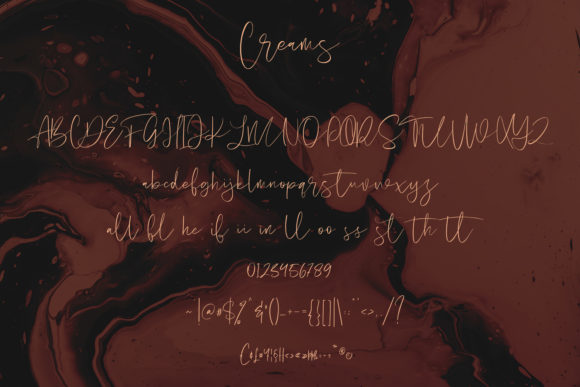 Creams
ABCDEFGHIJKLMNOPQRSTUVWXYZ
abcdefghijklmnopqrstuvwxyz
all fl he if ii in ll oo ss st th tt
0123456789